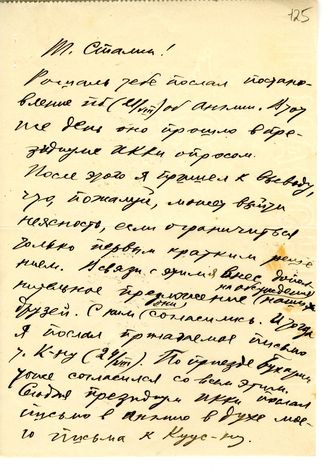 125
Т. Сталин!
Кошаль тебе послал постано-
вление ПБ (21/VIII) об Англии. В тот
же день оно прошло в пре-
зидиуме ИККИ опросом.
После этого я пришел к выводу,
что, пожалуй, может выйти
неясность, если ограничиться
только первым кратким реше-
нием. В связи с этим я внес допол-
на обсуждение
нительное предложение наших
друзей. С ним они согласились. И тогда
я послал прилагаемое письмо
т. К-ну (24/VIII). По приезде Бухарин
тоже согласился со всем этим.
Сегодня президиум ИККИ послал
письмо в Англию в духе мое-
го письма к Куус-ну.